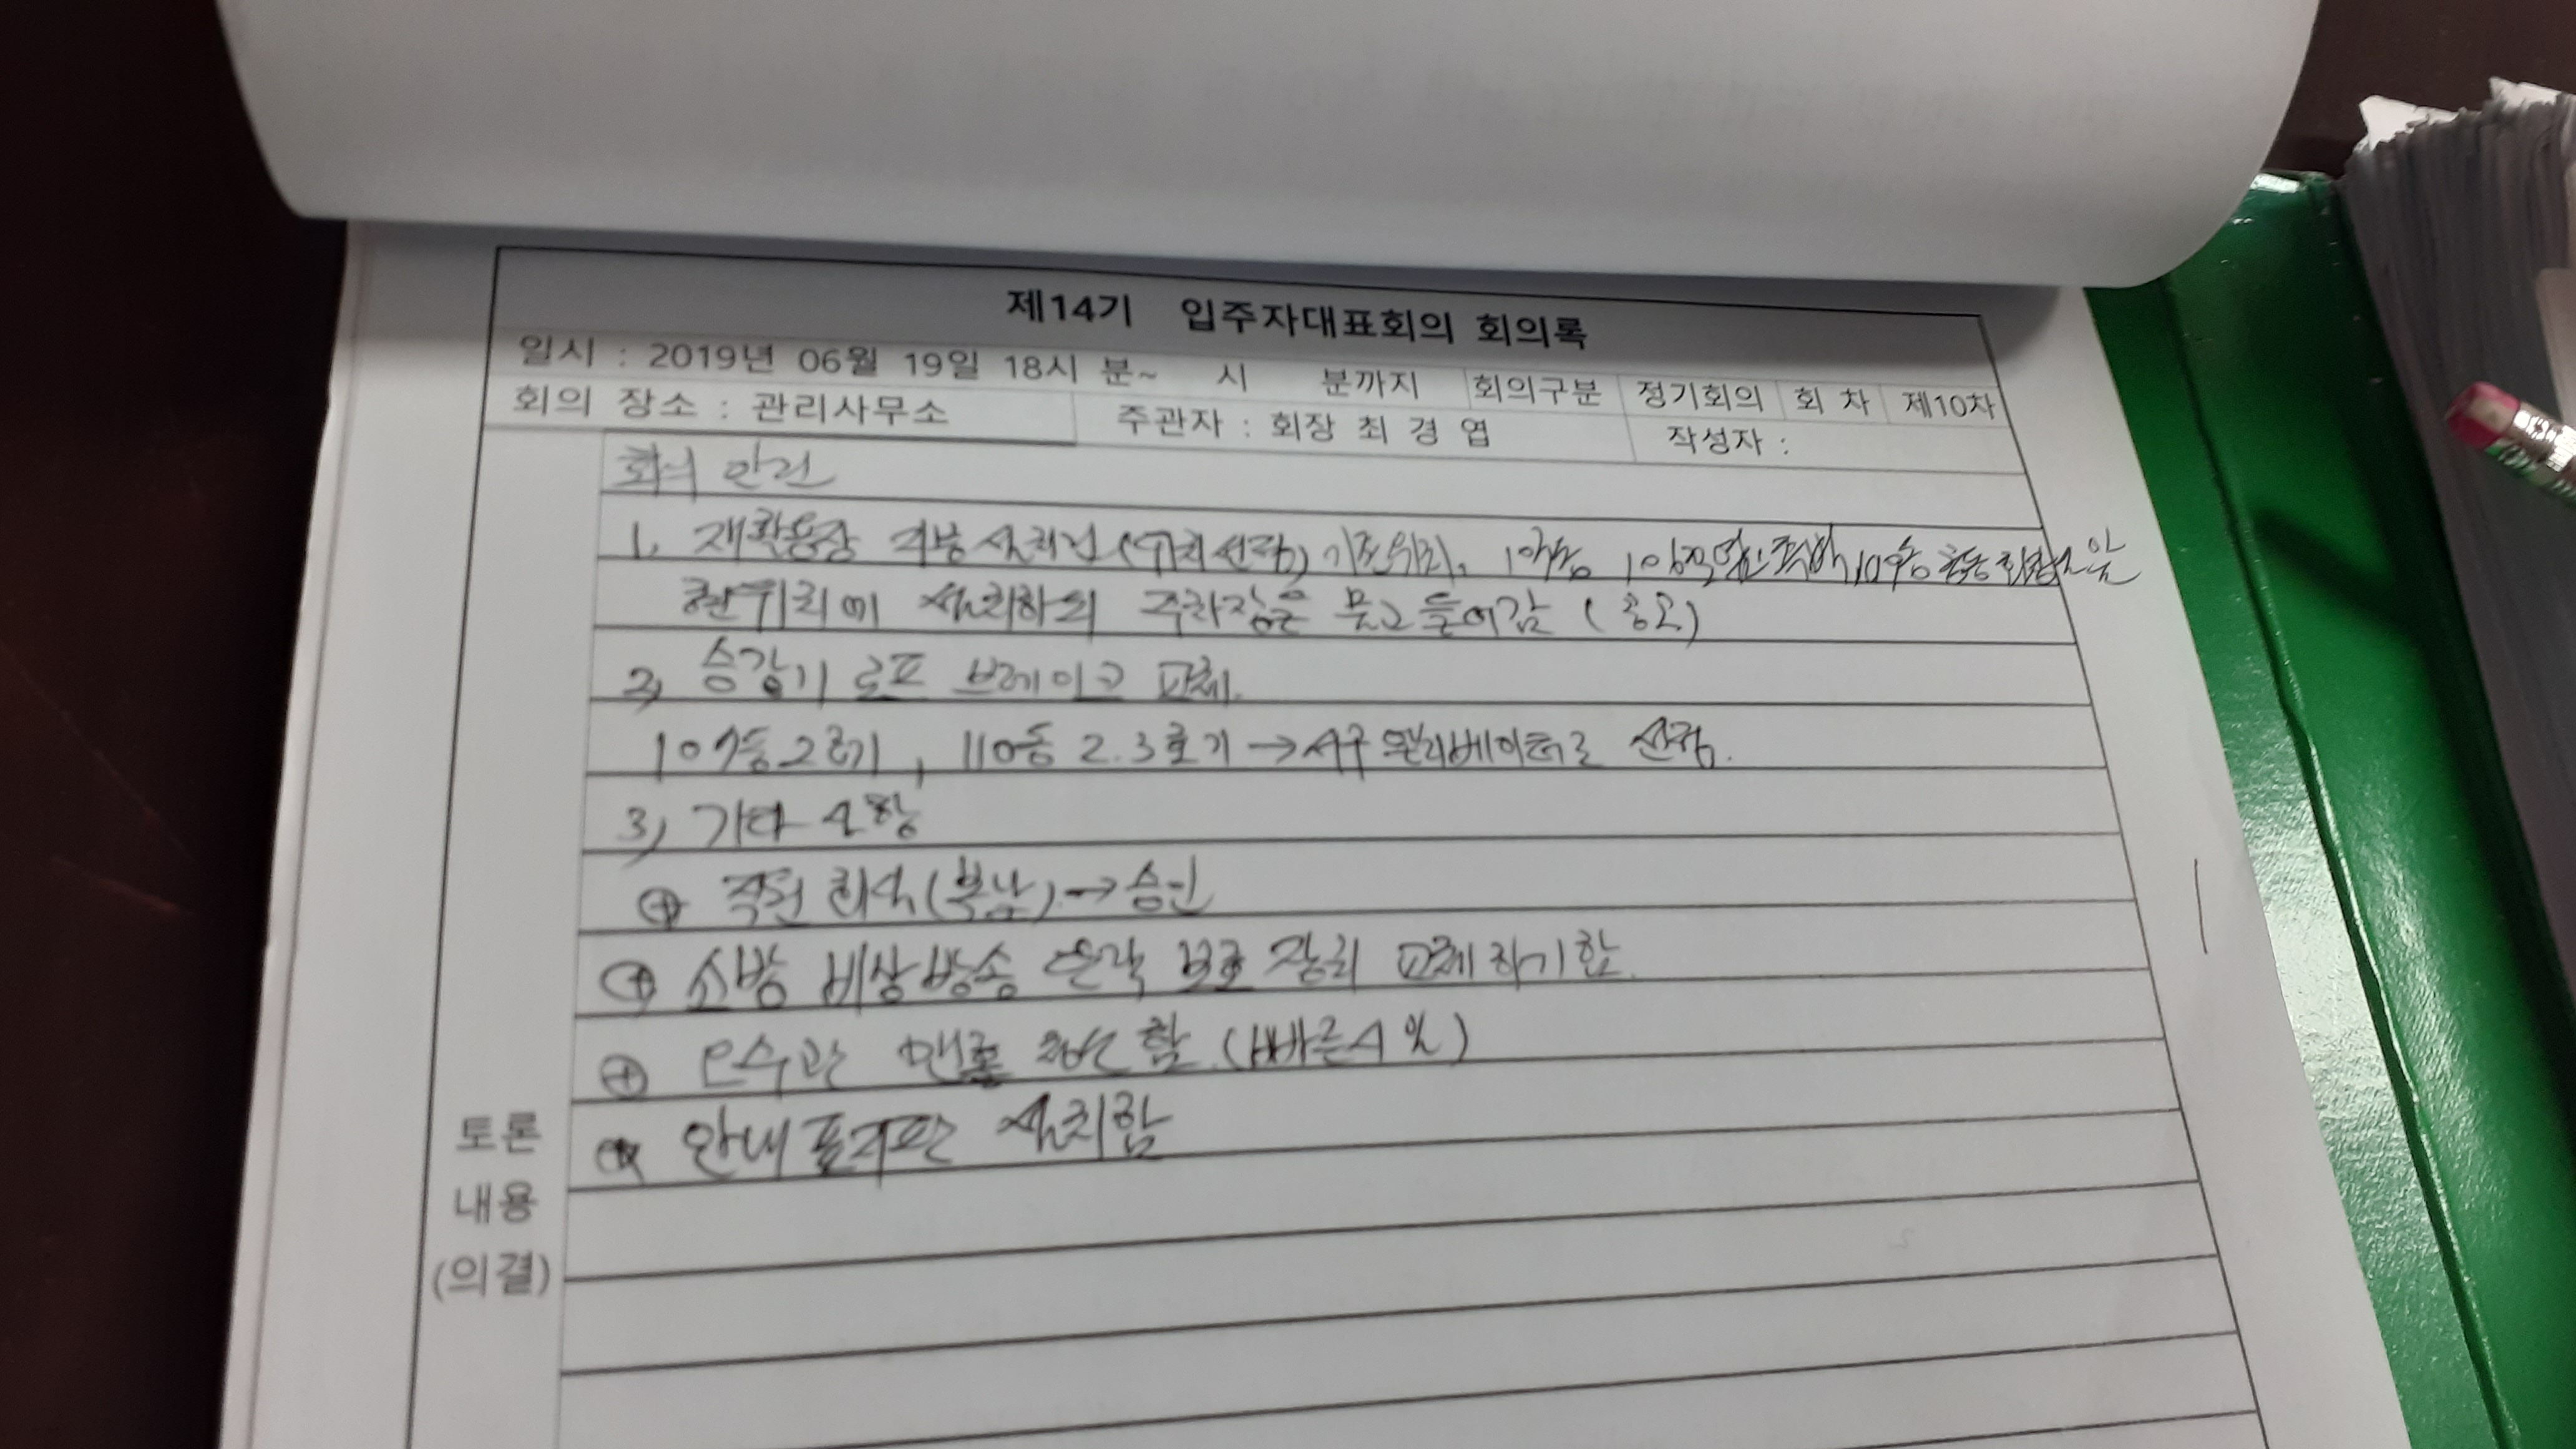 제14기 입주자대표회의 회의록
일시 : 2019년 06월 19일 18시 분~ 시 분까지 회의구분 정기회의 회 차 제10차
회의 장소 : 관리사무소 주관자 : 회장 최 경 엽 작성자 :
회의 안건
1. 재활용장 지붕 설치건 (위치선정) 기존위치,
현위치에 설치하되 주차장은 묻고 들어감
2) 승강기 로프 브레이크 교체.
109동 2호기, 110동 2.3호기 → 서구 엘리베이터로 선정.
3) 기타 사항
⊕ 직원 회식 (복날) → 승인
⊕ 소방 비상방송 보호 장치 교체하기함.
⊕ 맨홀 함. (빠른시일)
안내표지판 설치함
토론
내용
(의결)